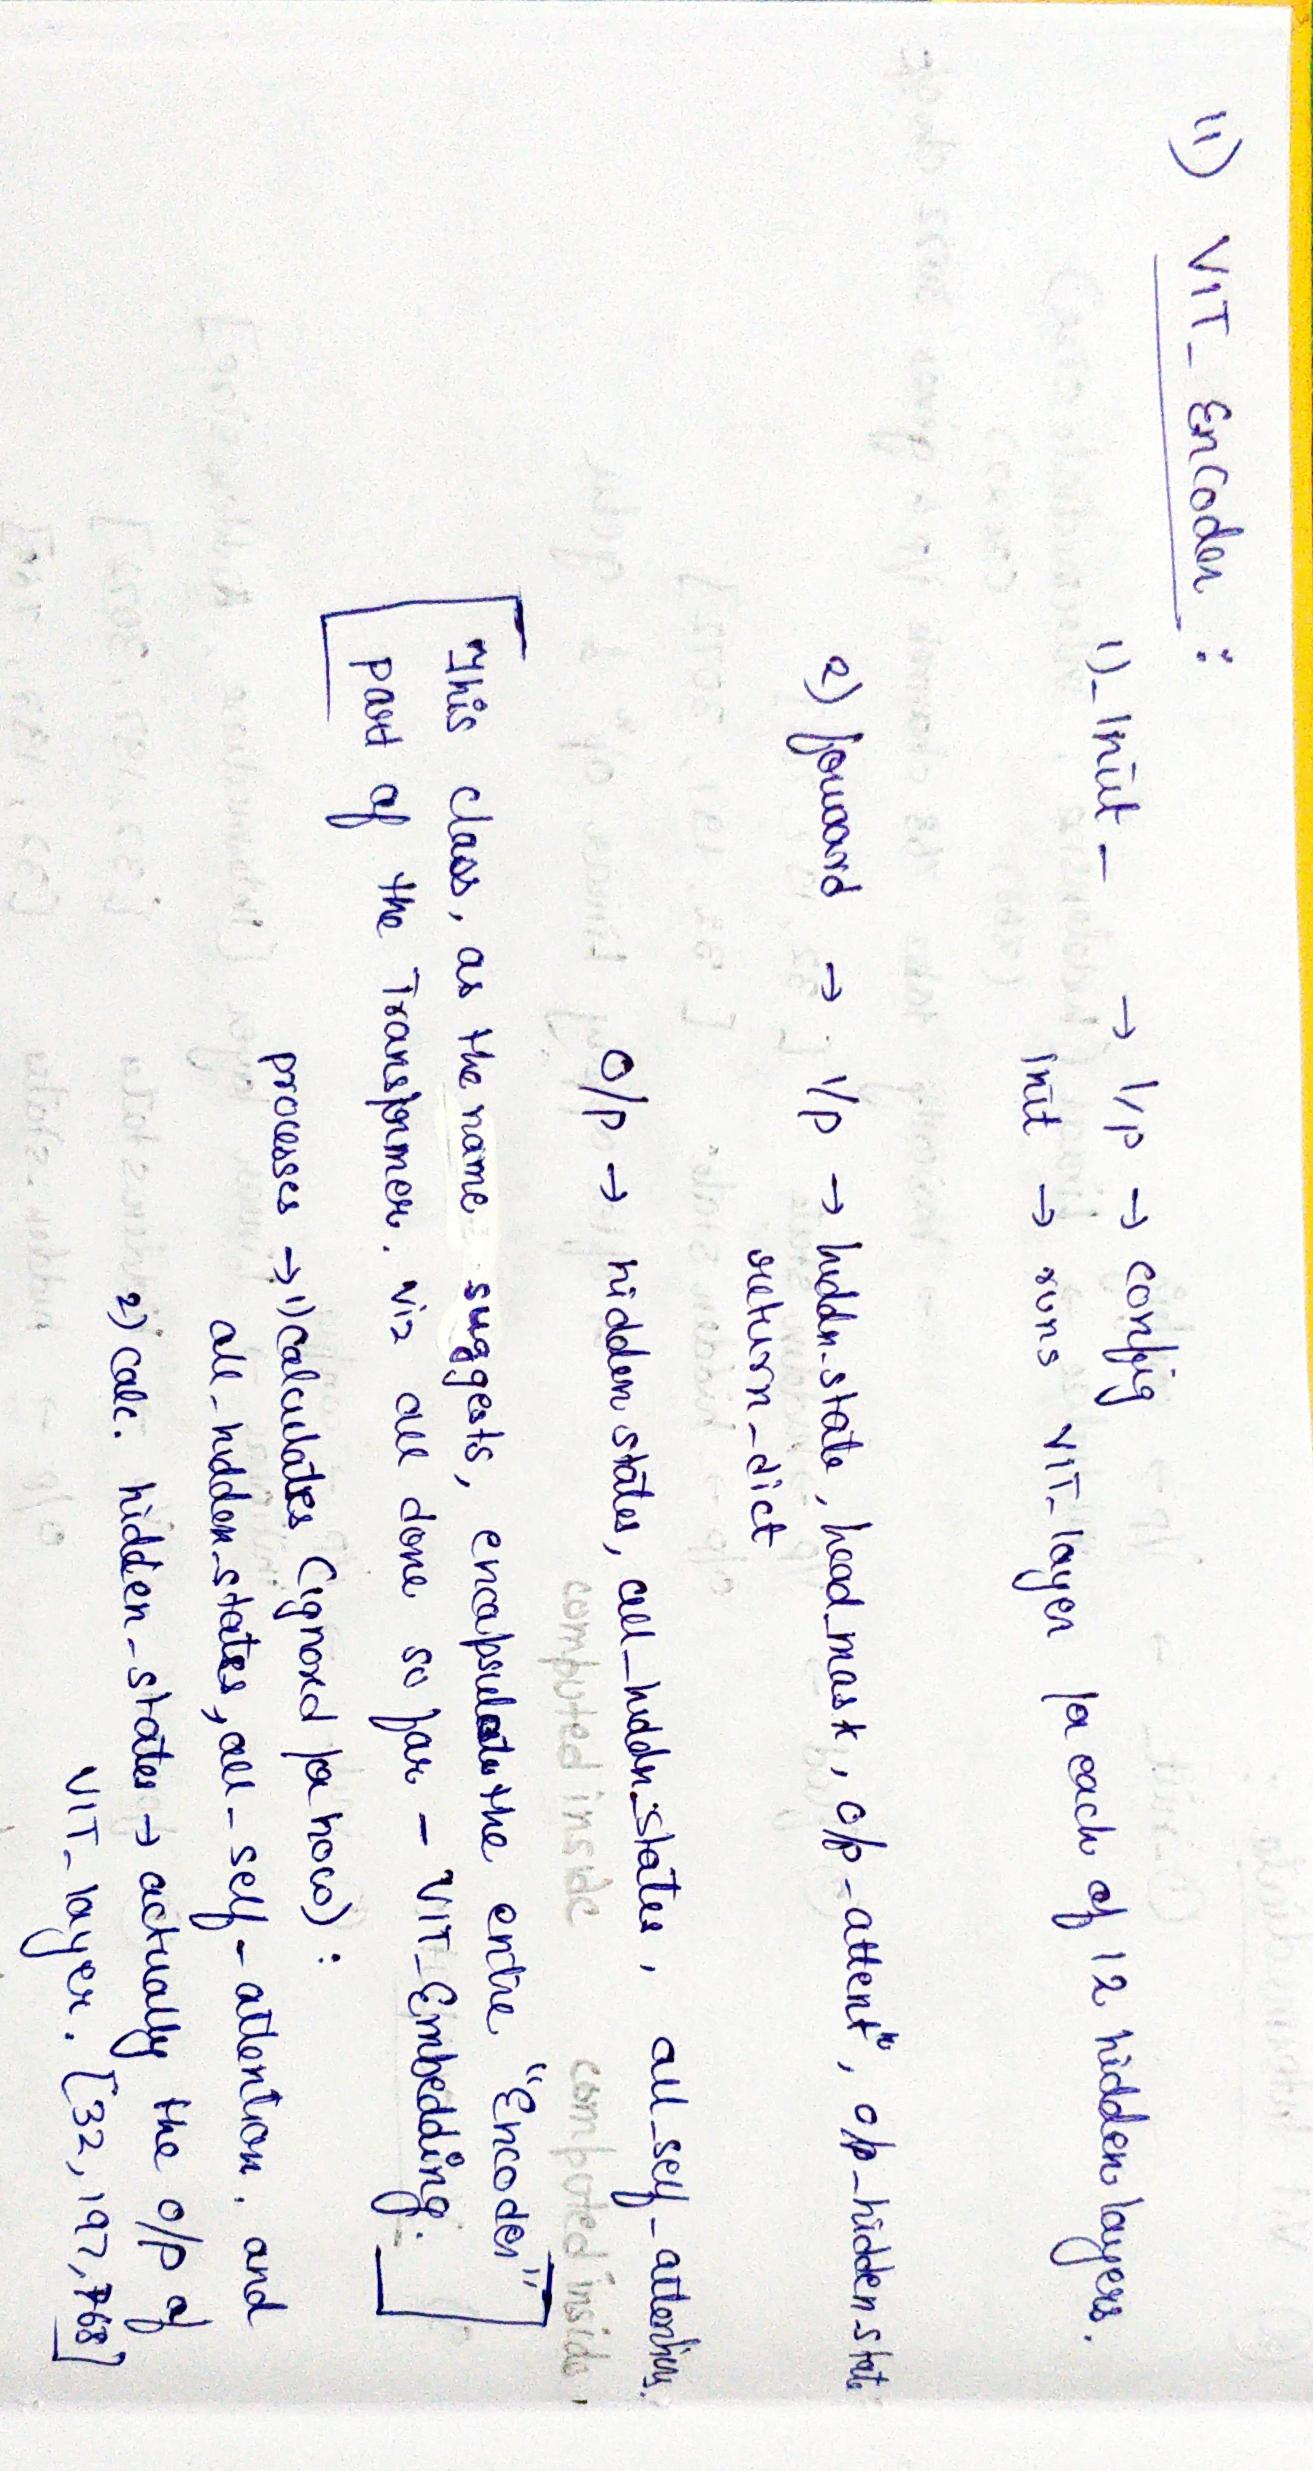 11) VIT_Encoder :
1)_Init_ → I/p → config
Init → runs VIT_layer for each of 12 hidden layers.
2) forward → I/p → hiddn_state, head_mask, o/p-attentⁿ, o/p_hidden_state
return_dict
O/p → hidden states, all_hiddn_states, all_self_attentions.
computed inside computed inside
This class, as the name suggests, encapsulates the entire "Encoder"
part of the Transformer. viz all done so far - VIT_Embedding.
processes → 1) calculates (ignored for now) :
all_hidden_states, all_self-attention. and
2) calc. hidden-states → actually the o/p of
VIT_layer. [32, 197, 768]